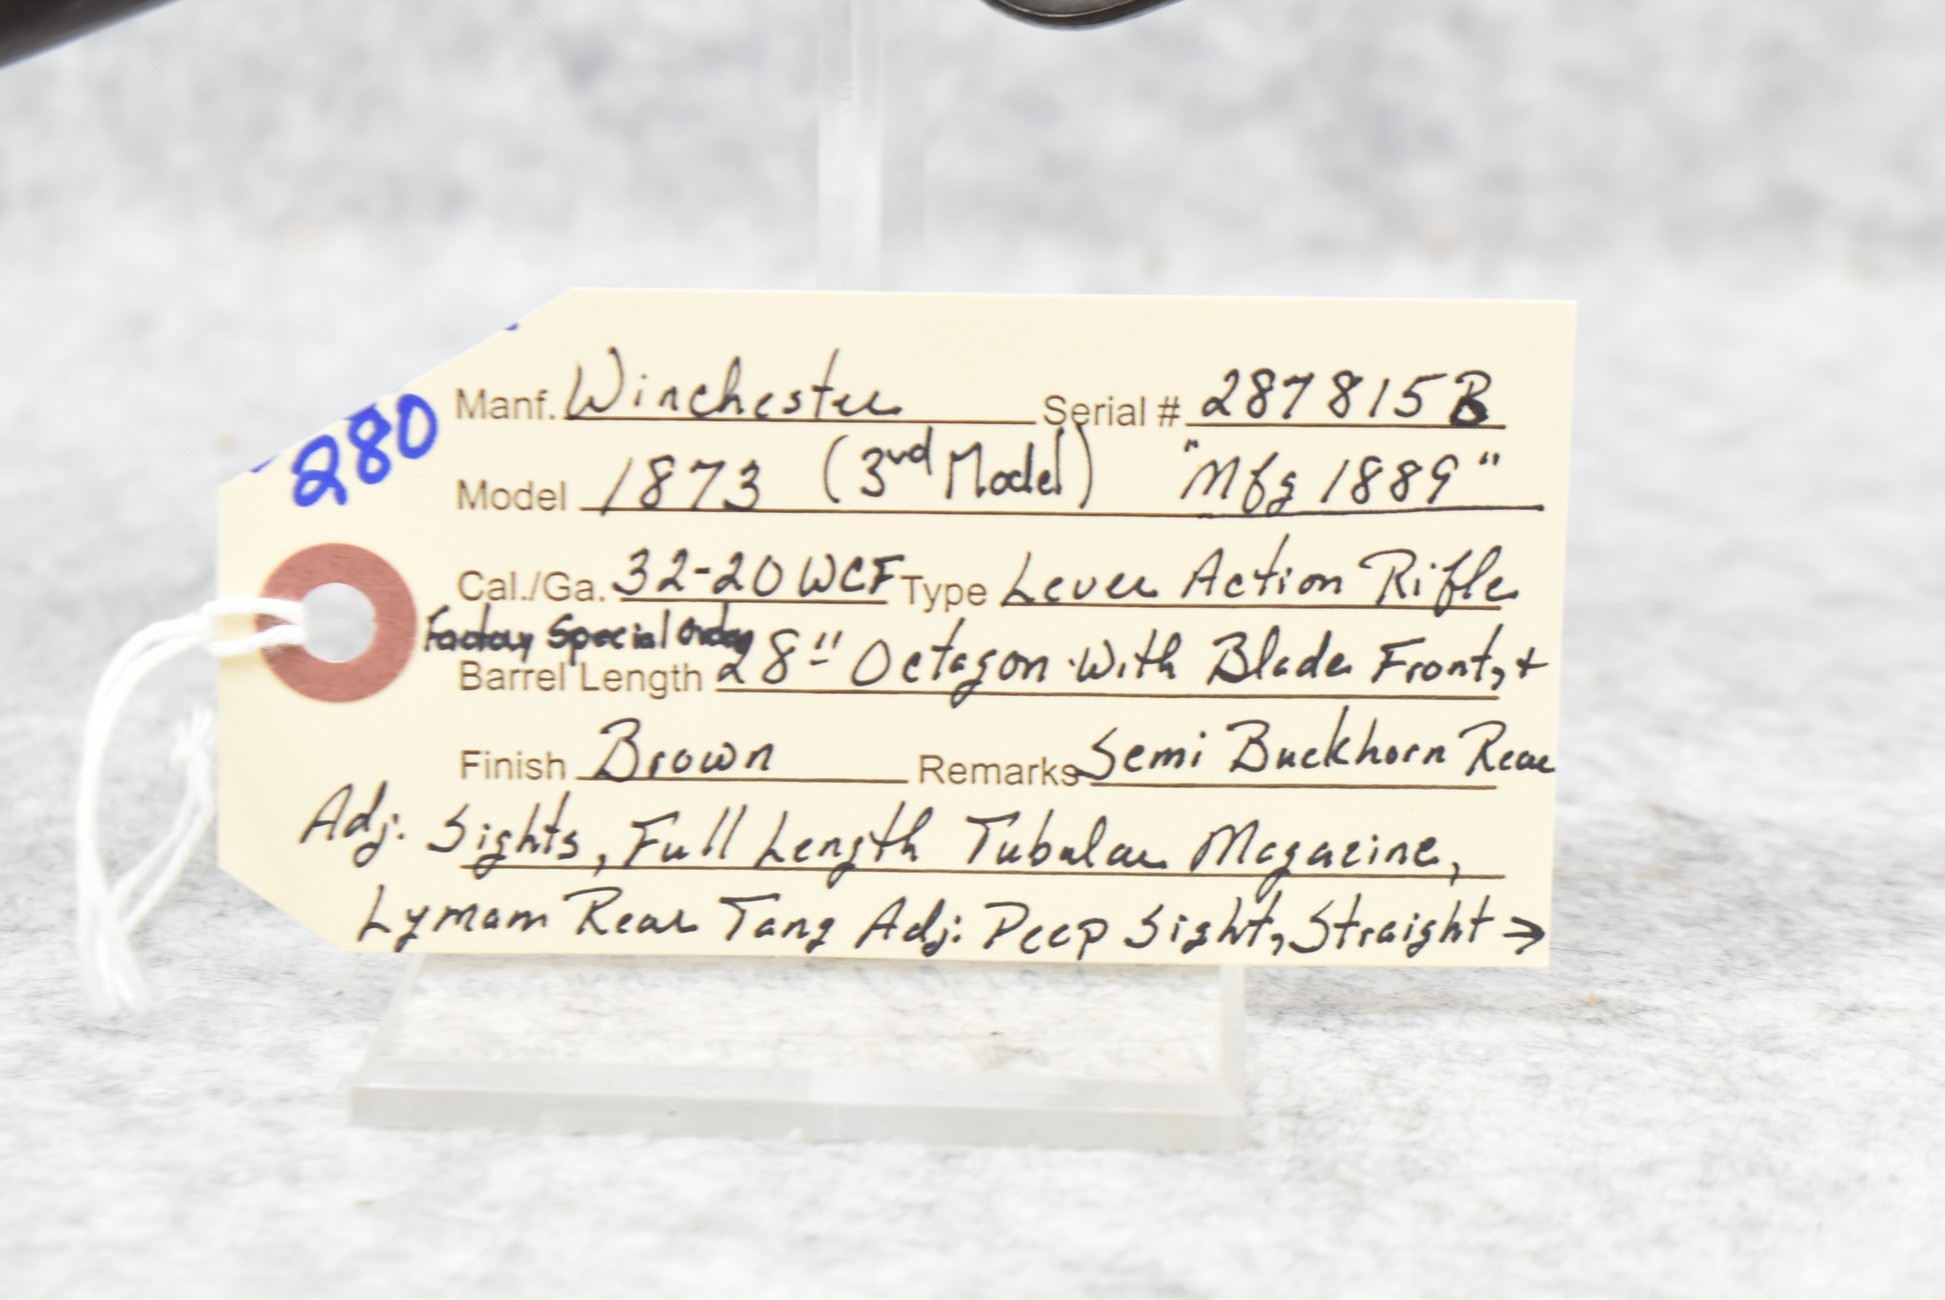 280
Manf. Winchester Serial # 287815B
Model 1873 (3rd Model) "Mfg 1889"
Cal./Ga. 32-20 WCF Type Lever Action Rifle
Factory Special Order
Barrel Length 28" Octagon With Blade Front, +
Finish Brown Remarks Semi Buckhorn Rear
Adj. Sights, Full Length Tubular Magazine,
Lymam Rear Tang Adj. Peep Sight, Straight →